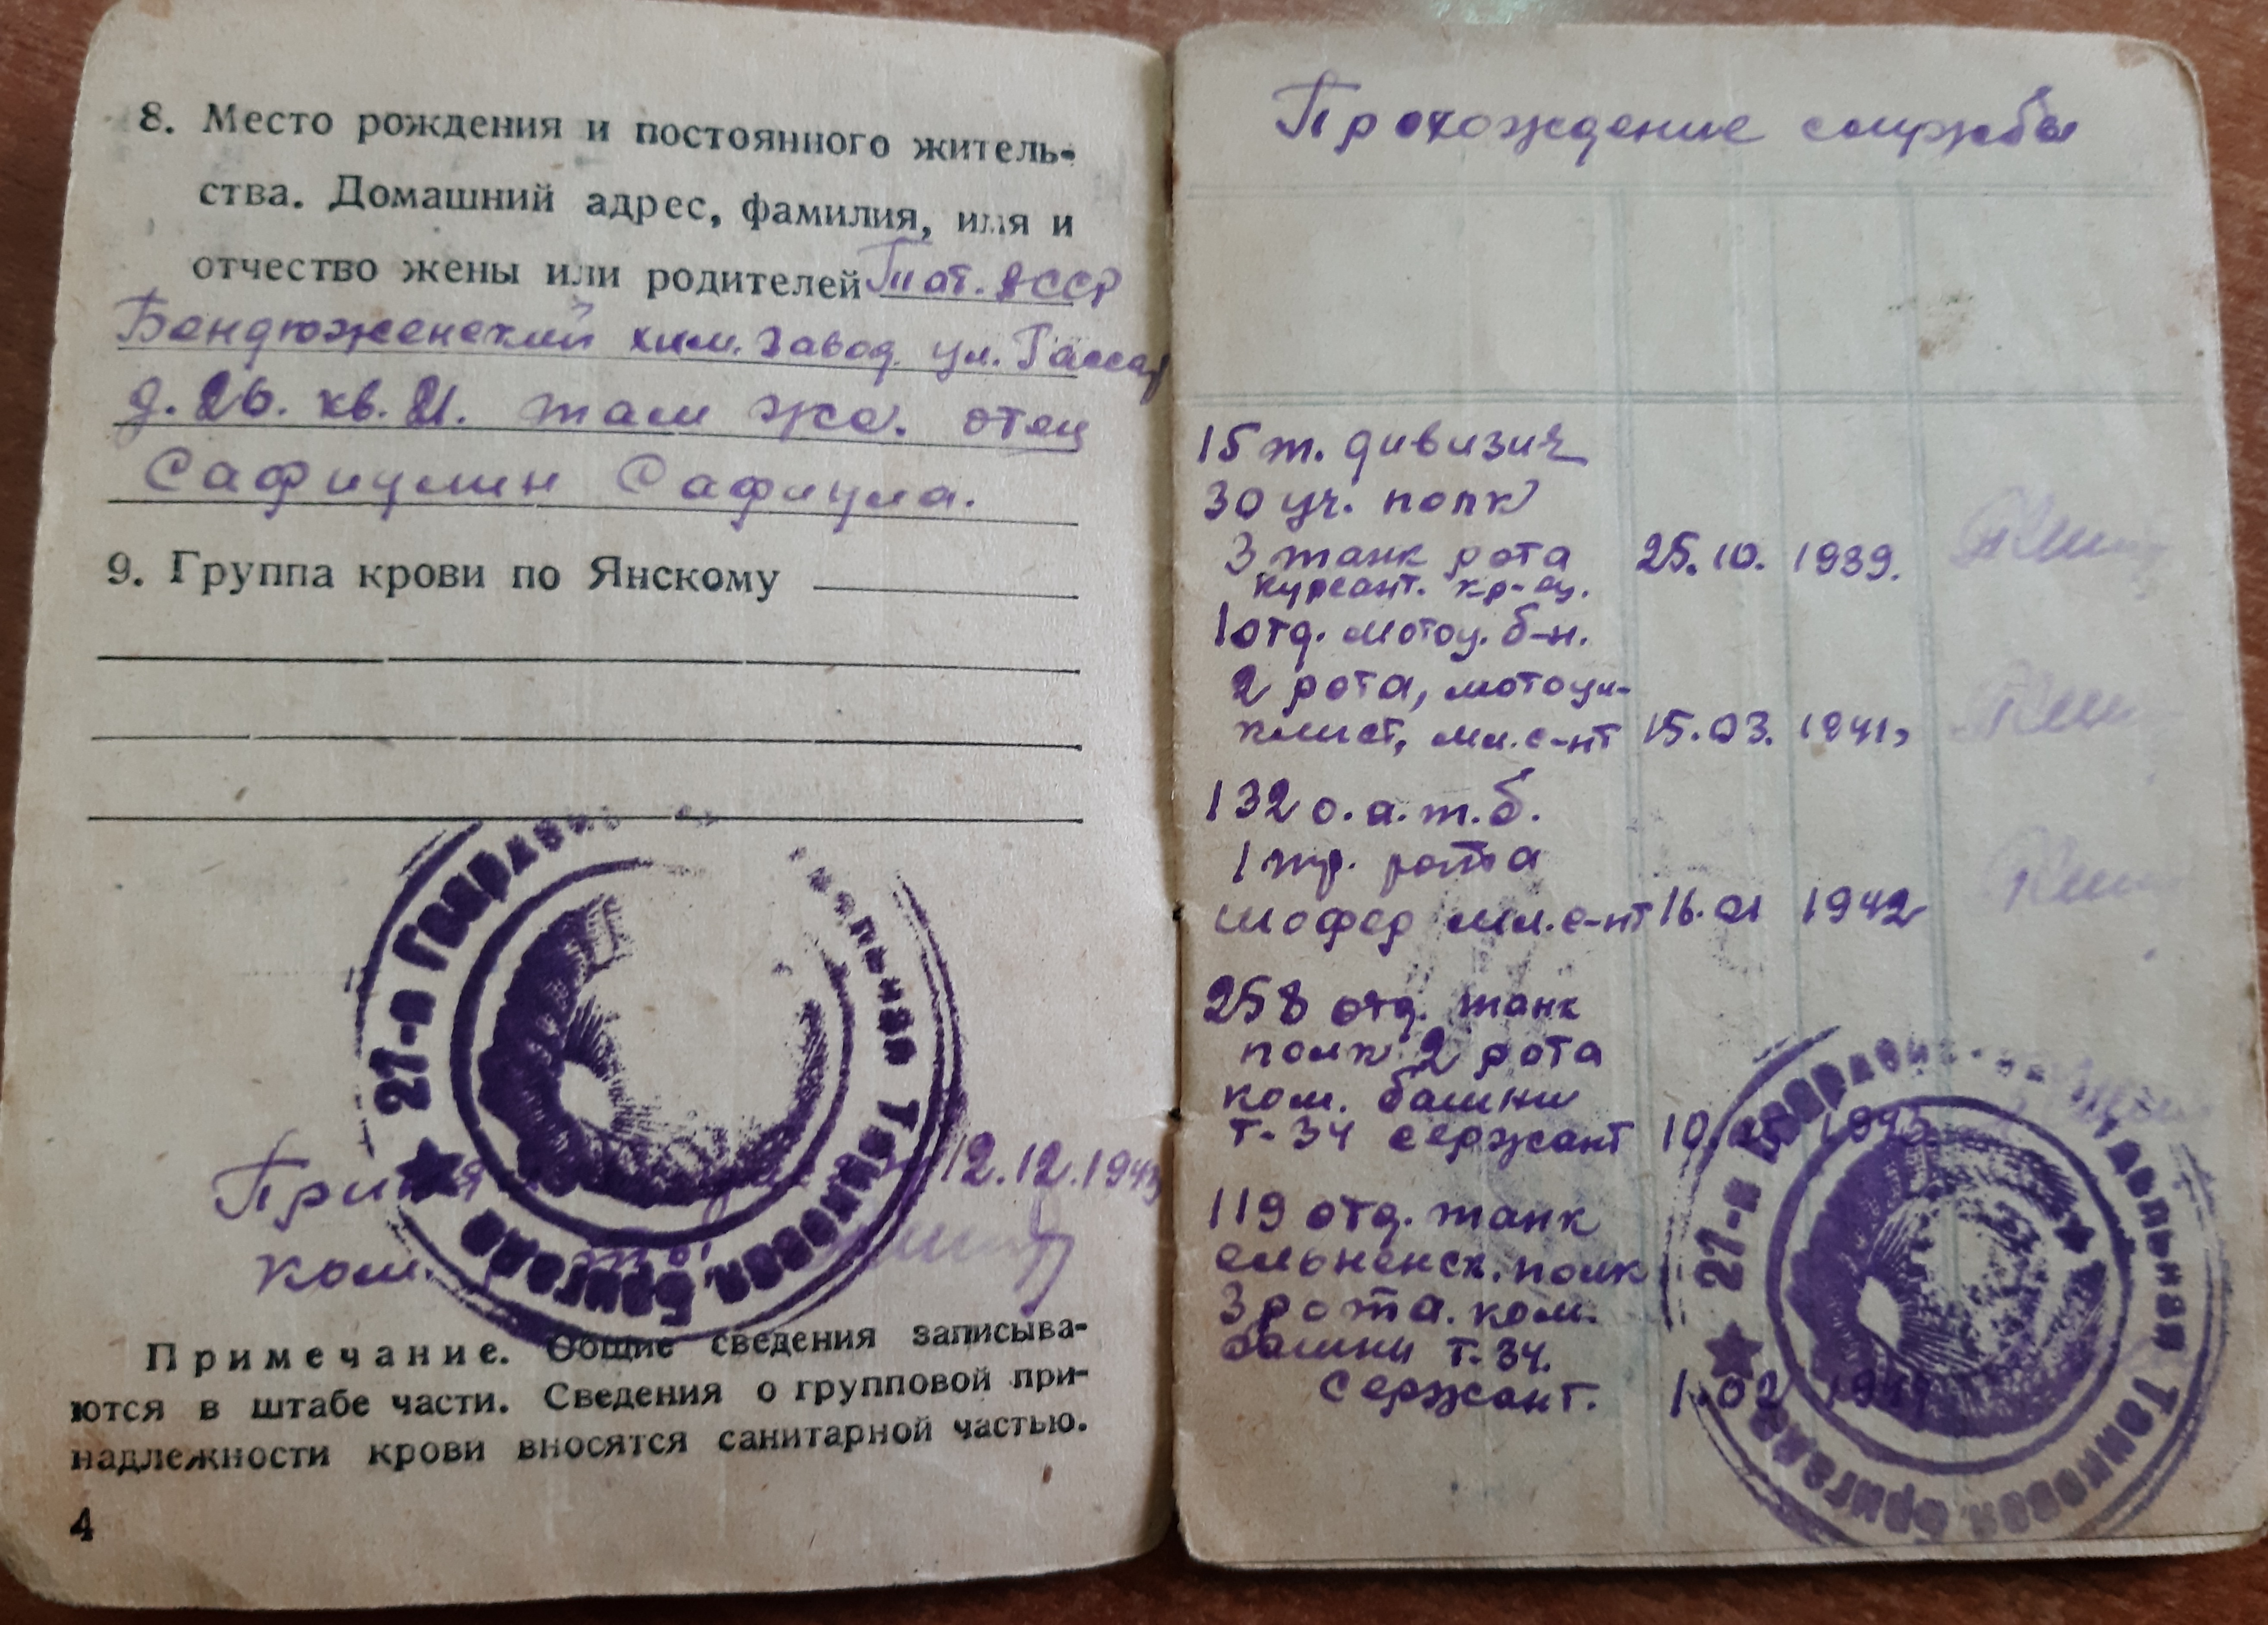 8. Место рождения и постоянного житель-
ства. Домашний адрес, фамилия, имя и
отчество жены или родителей Тат. АССР
Бондюженский хим. завод. ул. Гассар
д. 26. кв. 21. там же. отец
Сафиулин Сафиула.
9. Группа крови по Янскому
21-я Гвардейс
Танковая Бригада
12.12.194
ком.
Примечание. Общие сведения записыва-
ются в штабе части. Сведения о групповой при-
надлежности крови вносятся санитарной частью.
4
Прохождение службы
15 т. дивизия
30 уч. полк
3 танк рота 25.10. 1939.
курсант. кр-ец.
1 отд. мотоц. б-н.
2 рота, мотоци-
клист, мл. с-нт 15.03. 1941
132 о.а.т.б.
1 тр. рота
шофер мл. с-нт 16.01 1942
258 отд. танк
полк 2 рота
ком. башни
Т-34 сержант 10.
119 отд. танк
ельненск. полк
3 рота. ком.
башни Т-34.
сержант. 1.02
21-я Гвардейс
дельная Танковая Бригада